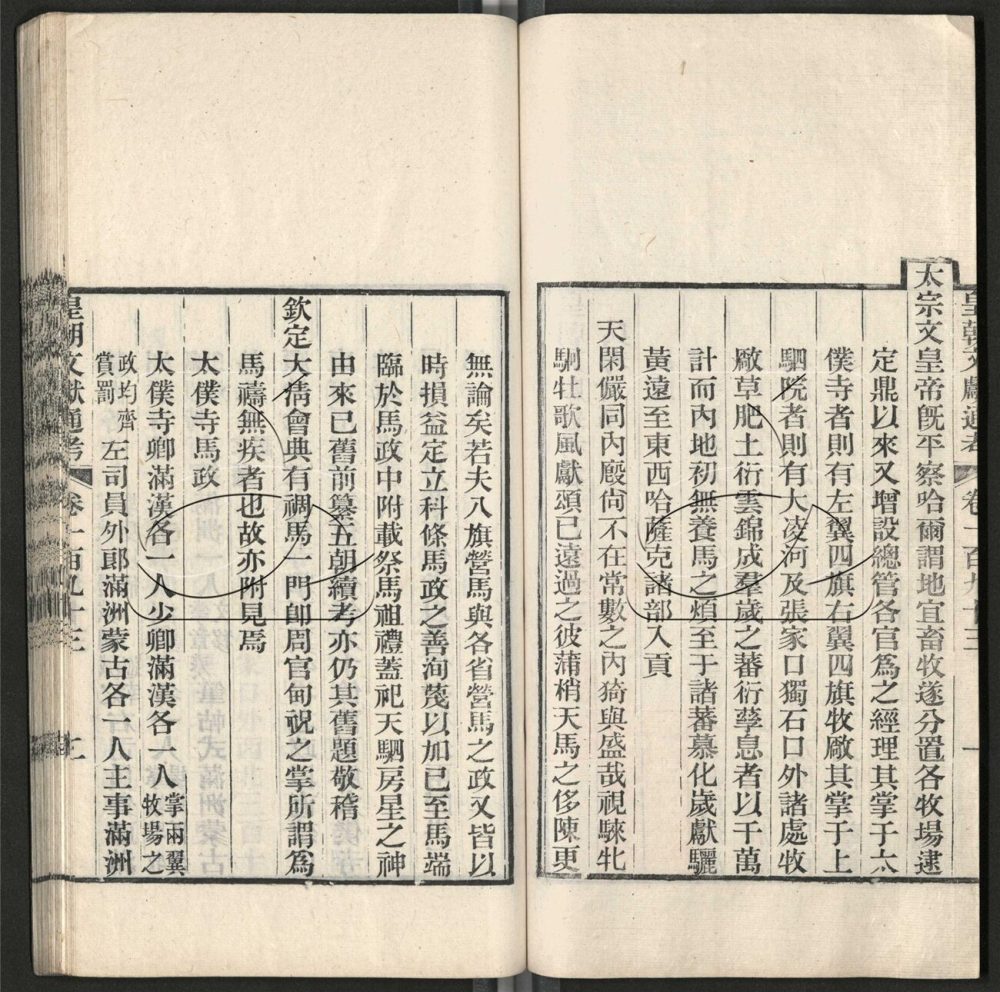 皇朝文獻通考 卷一百九十三 一
太宗文皇帝旣平察哈爾謂地宜畜牧遂分置各牧場逮
定鼎以來又增設總管各官爲之經理其掌于太
僕寺者則有左翼四旗右翼四旗牧厰其掌于上
駟院者則有大凌河及張家口獨石口外諸處牧
厰草肥土衍雲錦成羣歲之蕃衍孳息者以千萬
計而內地初無養馬之煩至于諸蕃慕化歲獻驪
黃遠至東西哈薩克諸部入貢
天閑儼同內廏尙不在常數之內猗與盛哉視騋牝
駉牡歌風獻頌已遠過之彼蒲梢天馬之侈陳更
無論矣若夫八旗營馬與各省營馬之政又皆以
時損益定立科條馬政之善洵蔑以加已至馬端
臨於馬政中附載祭馬祖禮蓋祀天駟房星之神
由來已舊前纂五朝續考亦仍其舊題敬稽
欽定大清會典有禂馬一門卽周官甸祝之掌所謂爲
馬禱無疾者也故亦附見焉
太僕寺馬政
太僕寺卿滿漢各一人少卿滿漢各一人掌兩翼牧場之
政均齊賞罰左司員外郎滿洲蒙古各一人主事滿洲
皇朝文獻通考 卷一百九十三